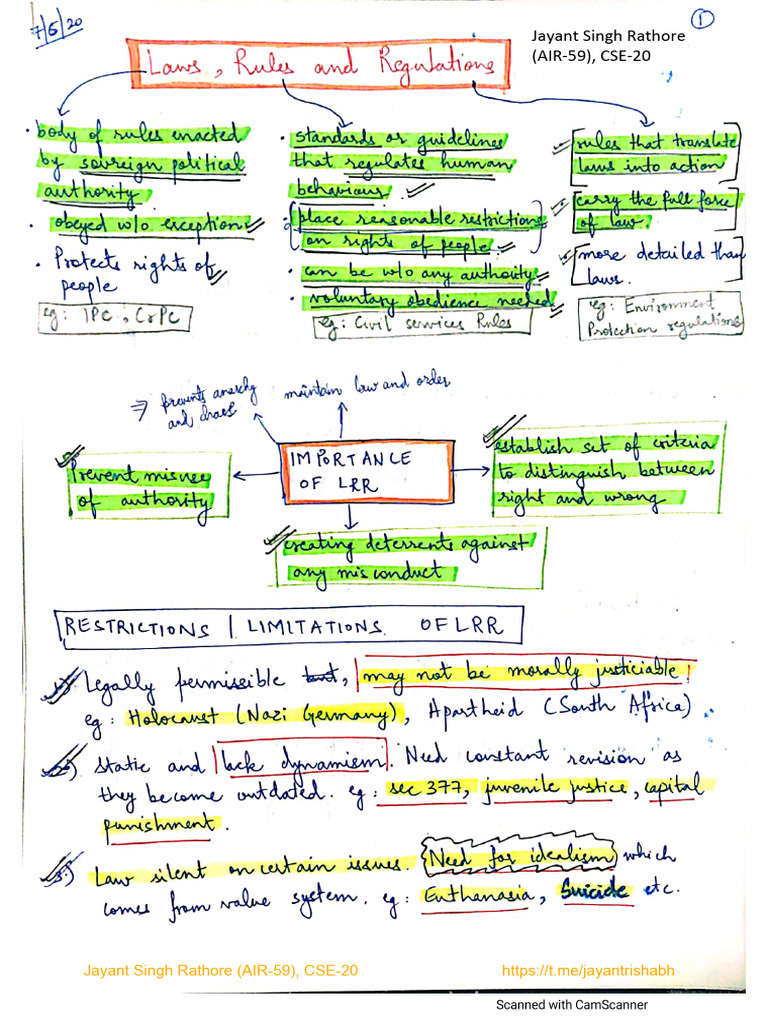 7/5/20
1
Jayant Singh Rathore
(AIR-59), CSE-20
Laws, Rules and Regulations
• body of rules enacted
by sovreign political
authority.
• obeyed w/o exception
• Protects rights of
people
eg: IPC, CrPC
• standards or guidelines
that regulates human
behaviours.
• place reasonable restrictions
on rights of people.
• can be w/o any authority
• voluntary obedience needed
eg: Civil services Rules
rules that translate
laws into action
carry the full force
of law.
more detailed than
laws.
eg: Environment
Protection regulations
⇒ prevents anarchy
and chaos
maintain law and order
IMPORTANCE
OF LRR
Prevent misuse
of authority
establish set of criteria
to distinguish between
right and wrong
creating deterrents against
any misconduct
RESTRICTIONS / LIMITATIONS OF LRR
1.) Legally permissible but, may not be morally justiciable
eg: Holocaust (Nazi Germany), Apartheid (South Africa).
2.) Static and lack dynamism. Need constant revision as
they become outdated. eg: sec 377, juvenile justice, capital
punishment.
3.) Law silent on certain issues. Need for idealism which
comes from value system. eg: Euthanasia, Suicide etc.
Jayant Singh Rathore (AIR-59), CSE-20 https://t.me/jayantrishabh
Scanned with CamScanner